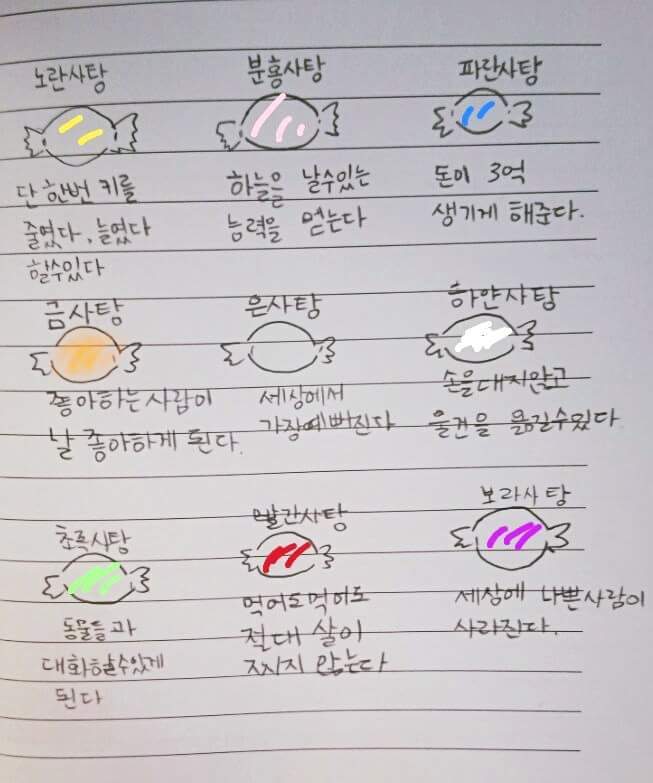 노란사탕
단 한번 키를
줄였다, 늘였다
할수있다
분홍사탕
하늘을 날수있는
능력을 얻는다
파란사탕
돈이 3억
생기게 해준다.
금사탕
좋아하는 사람이
날 좋아하게 된다.
은사탕
세상에서
가장예뻐진다
하얀사탕
손을대지않고
물건을 옮길수있다
초록사탕
동물들과
대화할수있게
된다
빨간사탕
먹어도먹어도
절대 살이
찌지 않는다
보라사탕
세상에 나쁜사람이
사라진다.